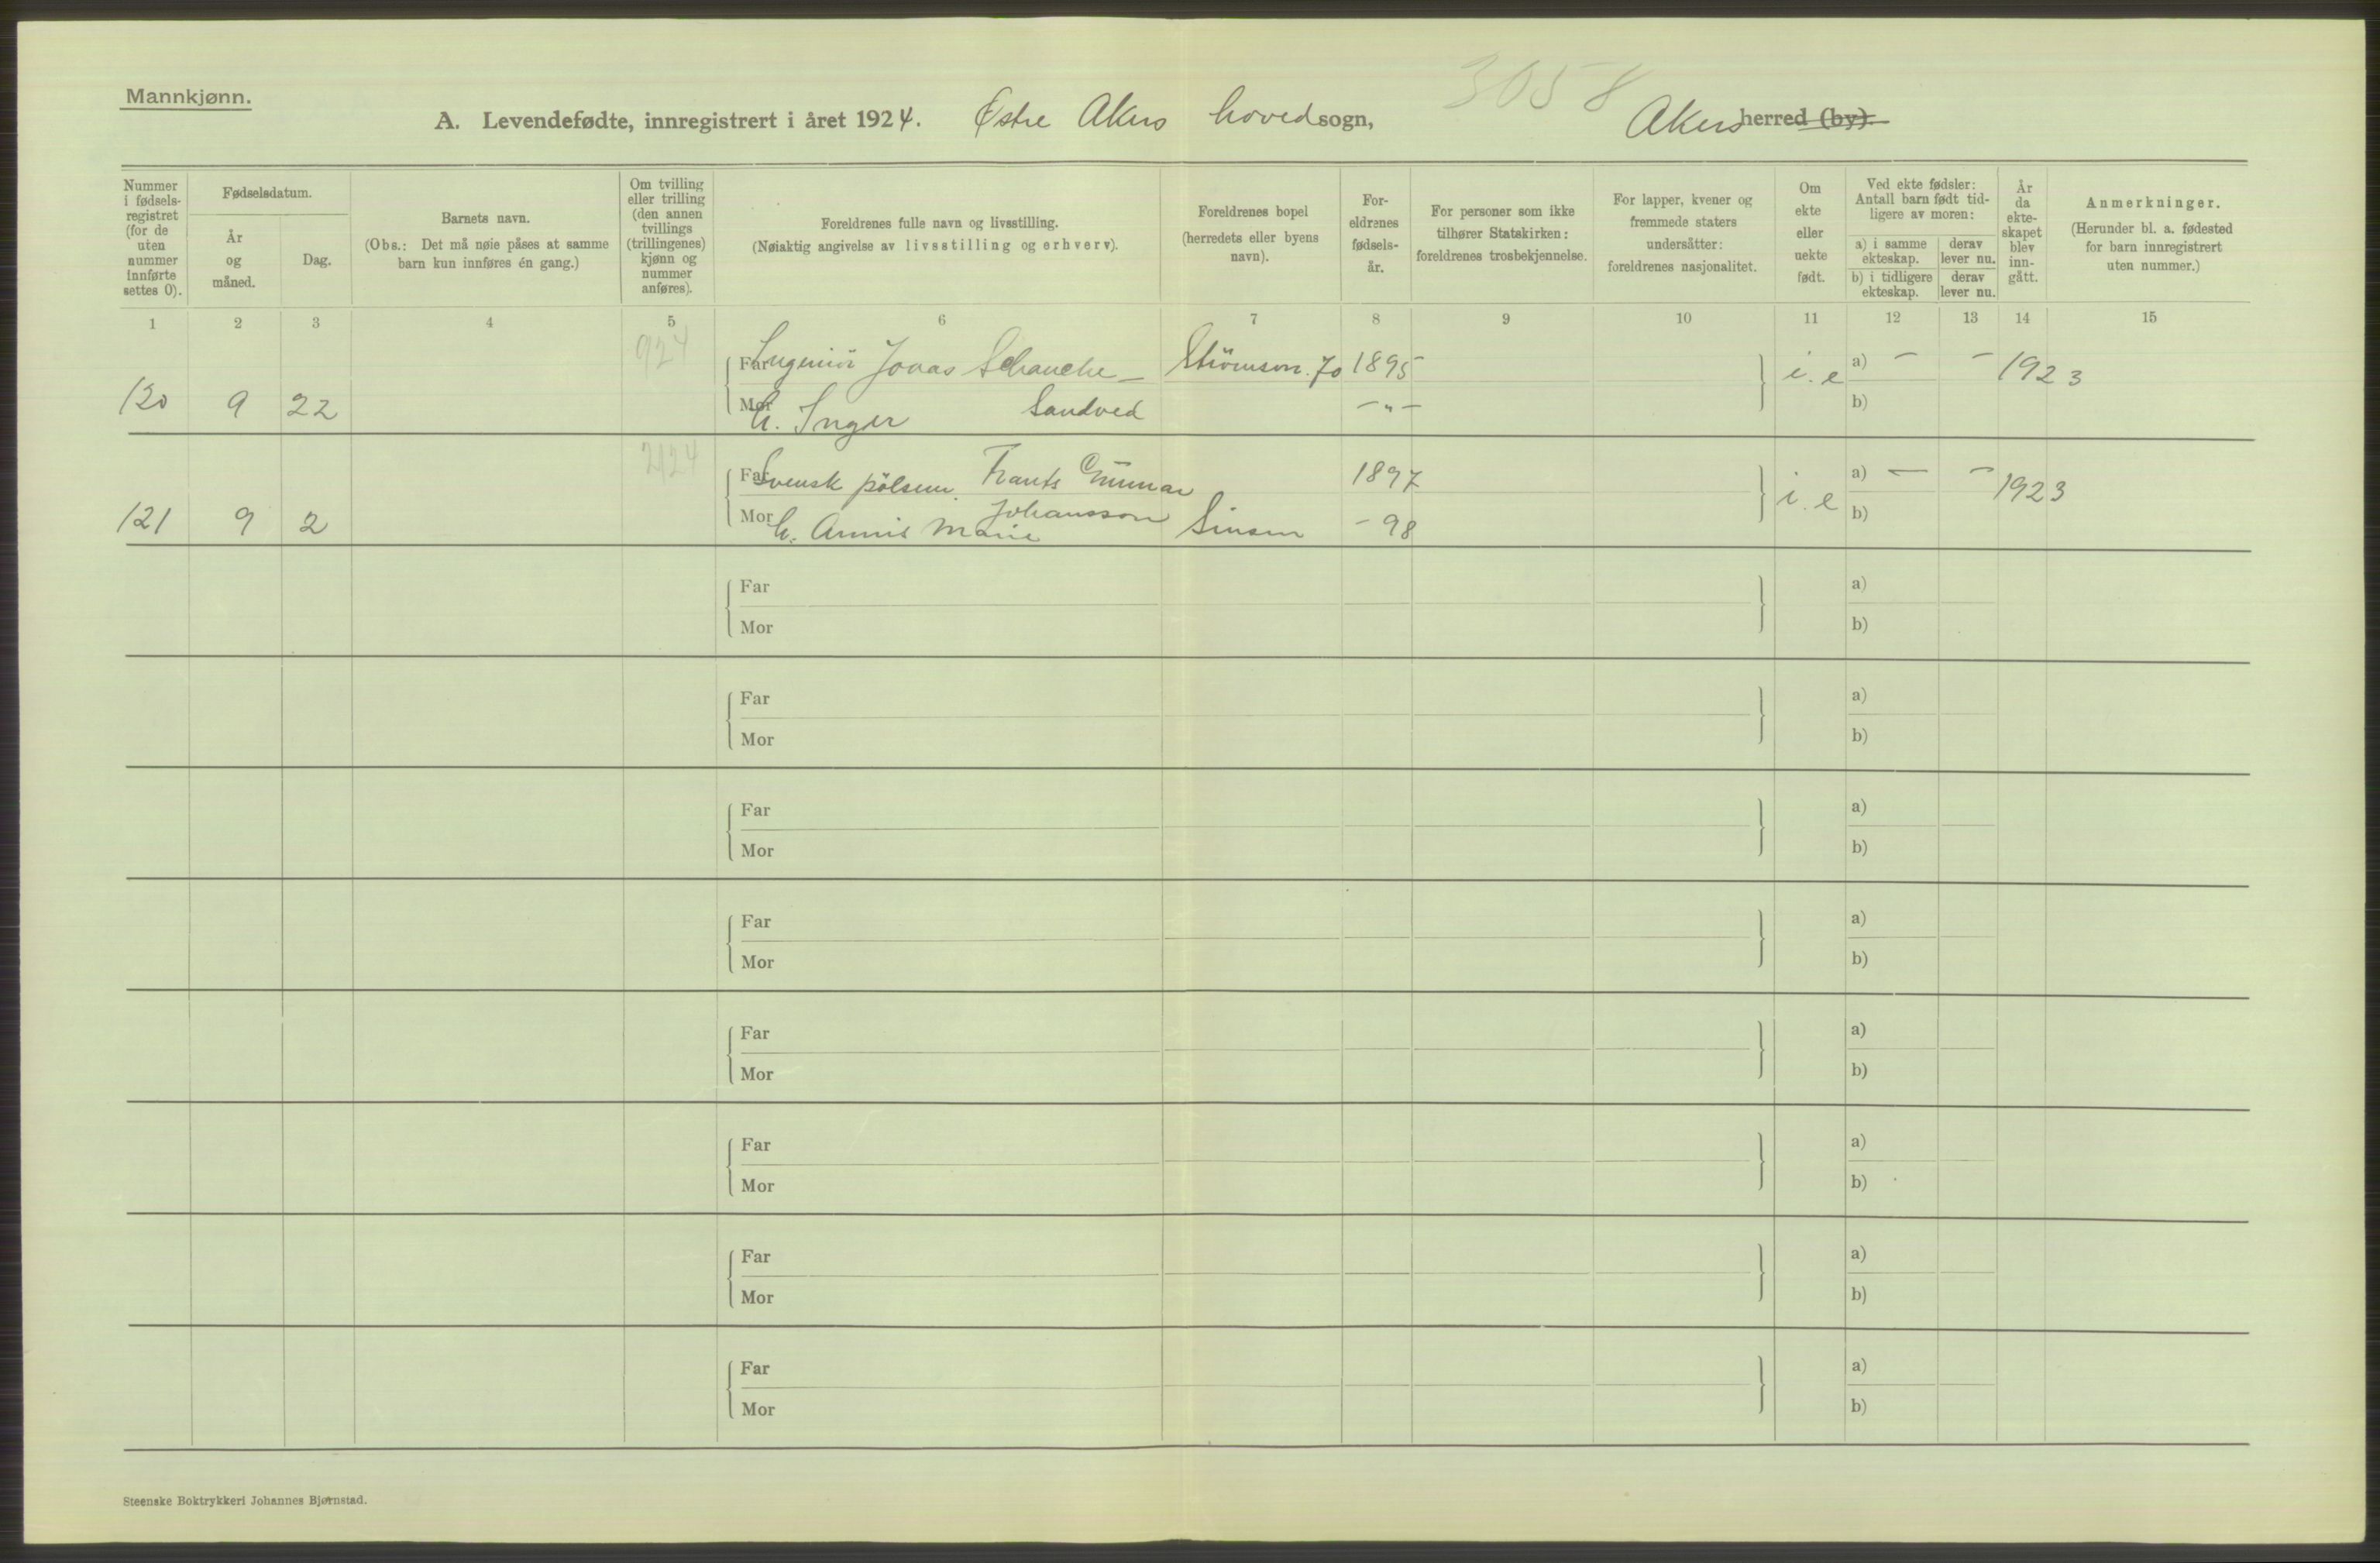 Mannkjønn.
3058
A. Levendefødte, innregistrert i året 1924. Østre Akers hovedsogn, Akersherred (by).
Nummer i fødsels-registret (for de uten nummer innførte settes 0).
Fødselsdatum.
År og måned.
Dag.
Barnets navn.
(Obs.: Det må nøie påses at samme barn kun innføres én gang.)
Om tvilling eller trilling (den annen tvillings (trillingenes) kjønn og nummer anføres).
Foreldrenes fulle navn og livsstilling.
(Nøiaktig angivelse av livsstilling og erhverv).
Foreldrenes bopel (herredets eller byens navn).
For-eldrenes fødsels-år.
For personer som ikke tilhører Statskirken: foreldrenes trosbekjennelse.
For lapper, kvener og fremmede staters undersåtter: foreldrenes nasjonalitet.
Om ekte eller uekte født.
Ved ekte fødsler: Antall barn født tid-ligere av moren:
a) i samme ekteskap.
derav lever nu.
b) i tidligere ekteskap.
derav lever nu.
År da ekte-skapet blev inn-gått.
Anmerkninger.
(Herunder bl. a. fødested for barn innregistrert uten nummer.)
1 2 3 4 5 6 7 8 9 10 11 12 13 14 15
924
Far Ingeniör Jonas Schanche – Strömsvn. 70 1895 i.e a) – – 1923
120 9 22 Mor h. Inger Sandved –"– b)
2124
Far Svensk pölsem. Frants Gunnar 1897 i.e a) – – 1923
Johansson
121 9 2 Mor h. Annie Marie Sinsen – 98 b)
Far a)
Mor b)
Far a)
Mor b)
Far a)
Mor b)
Far a)
Mor b)
Far a)
Mor b)
Far a)
Mor b)
Far a)
Mor b)
Far a)
Mor b)
Steenske Boktrykkeri Johannes Bjørnstad.